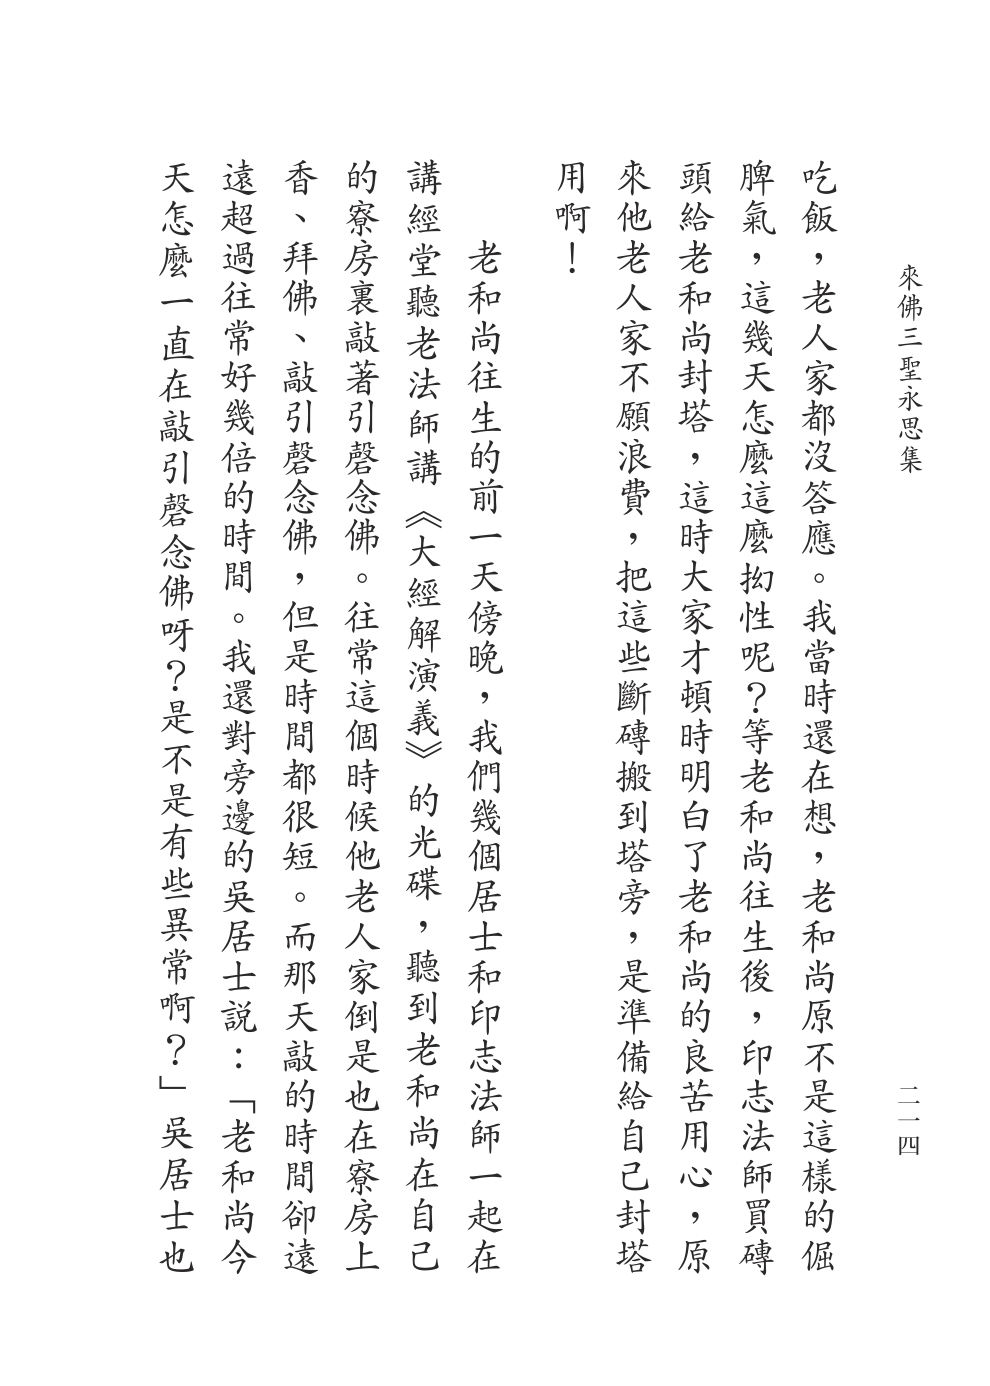 來佛三聖永思集
二一四
吃飯，老人家都沒答應。我當時還在想，老和尚原不是這樣的倔
脾氣，這幾天怎麼這麼拗性呢？等老和尚往生後，印志法師買磚
頭給老和尚封塔，這時大家才頓時明白了老和尚的良苦用心，原
來他老人家不願浪費，把這些斷磚搬到塔旁，是準備給自己封塔
用啊！
老和尚往生的前一天傍晚，我們幾個居士和印志法師一起在
講經堂聽老法師講《大經解演義》的光碟，聽到老和尚在自己
的寮房裏敲著引磬念佛。往常這個時候他老人家倒是也在寮房上
香、拜佛、敲引磬念佛，但是時間都很短。而那天敲的時間卻遠
遠超過往常好幾倍的時間。我還對旁邊的吳居士說：「老和尚今
天怎麼一直在敲引磬念佛呀？是不是有些異常啊？」吳居士也